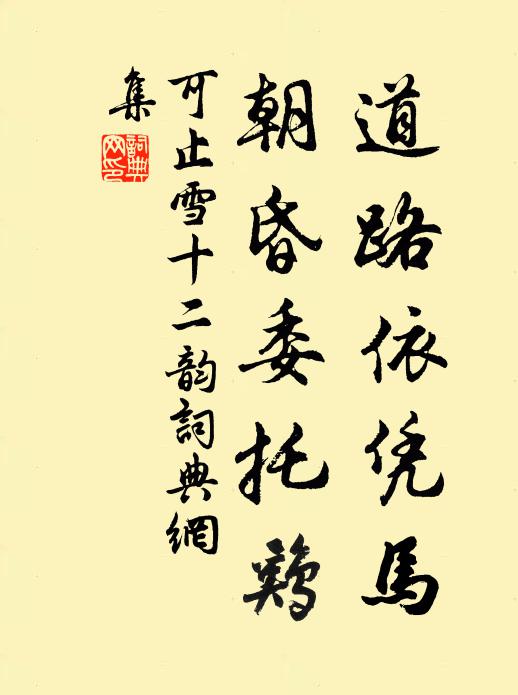 道路依凭馬
朝昏委托鷄
可止雪十二韵詞典網
集
詞典
网印